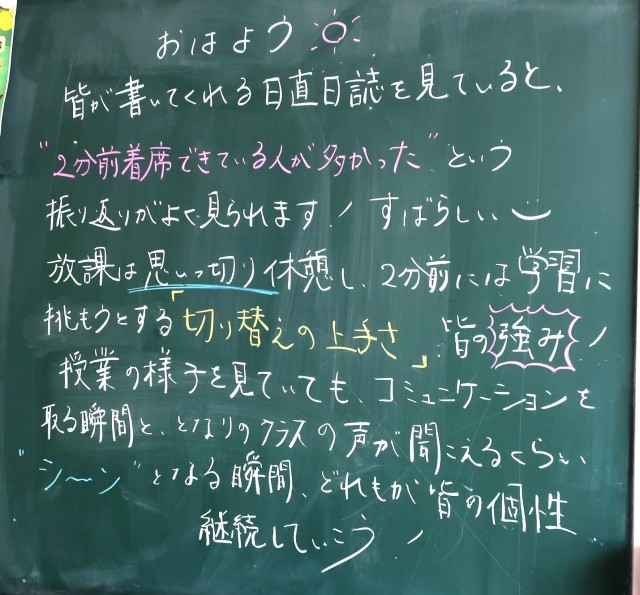 おはよう
皆が書いてくれる日直日誌を見ていると、
"2分前着席できている人が多かった"という
振り返りがよく見られます！すばらしい
放課は思いっ切り休憩し、2分前には学習に
挑もうとする「切り替えの上手さ」皆の強み！
授業の様子を見ていても、コミュニケーションを
取る瞬間と、となりのクラスの声が聞こえるくらい
"シ〜ン"となる瞬間、どれもが皆の個性
継続していこう！